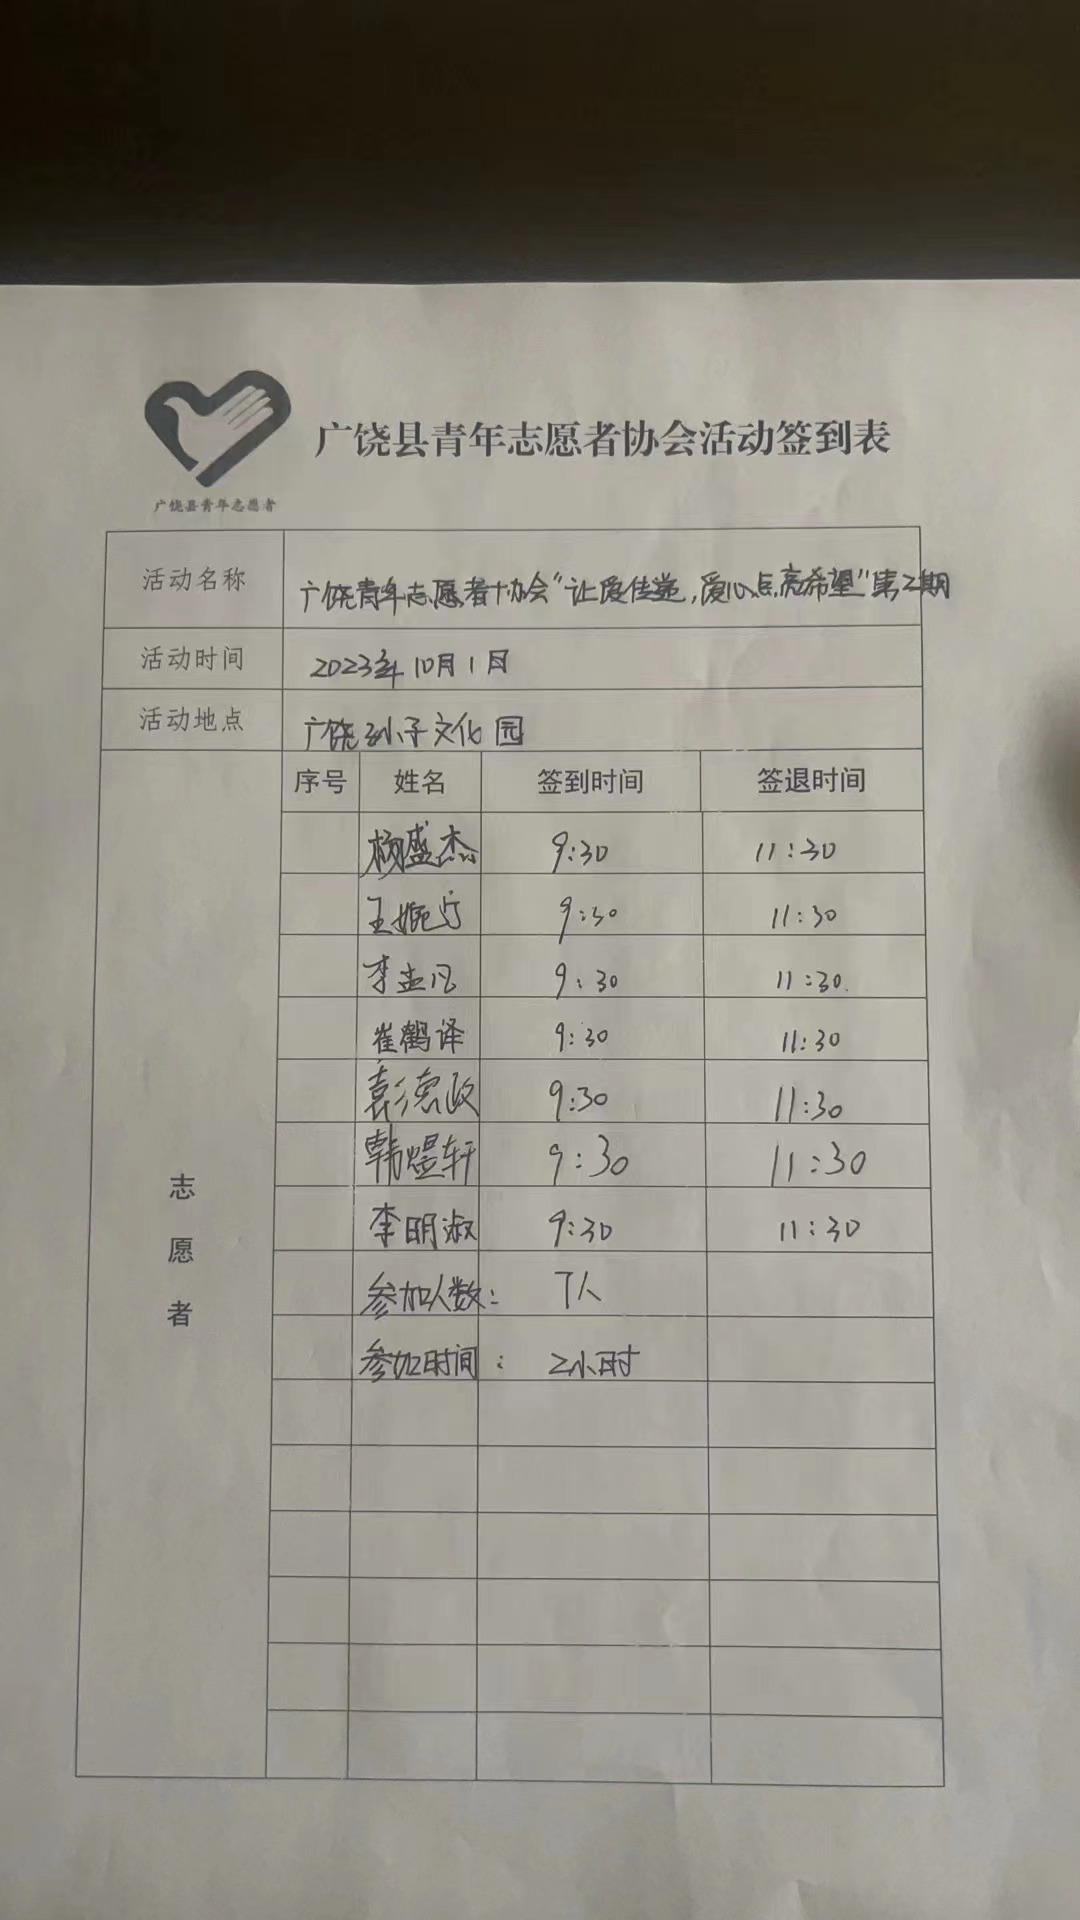 广饶县青年志愿者协会活动签到表
广饶县青年志愿者
活动名称 广饶青年志愿者协会“让爱传递,爱心点亮希望”第二期
活动时间 2023年10月1日
活动地点 广饶孙子文化园
序号 姓名 签到时间 签退时间
杨盛杰 9:30 11:30
王婉宁 9:30 11:30
李孟凡 9:30 11:30.
崔鹤译 9:30 11:30
袁德政 9:30 11:30
韩煜轩 9:30 11:30
李明淑 9:30 11:30
参加人数: 7人
参加时间: 2小时
志
愿
者